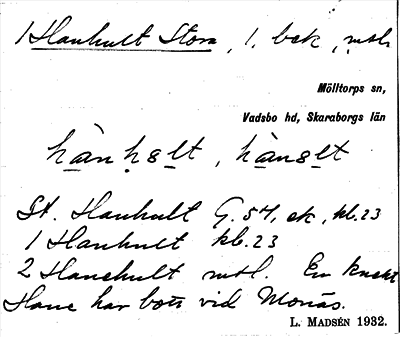 1 Hanhult Stora, 1. bek, mtl.
Mölltorps sn,
Vadsbo hd, Skaraborgs län
hànhəlt, hànəlt
St. Hanhult G. 57, ek, kb. 23
1 Hanhult kb. 23
2 Hanehult mtl. En knekt
Hane har bott vid Monäs.
L. MADSÉN 1932.